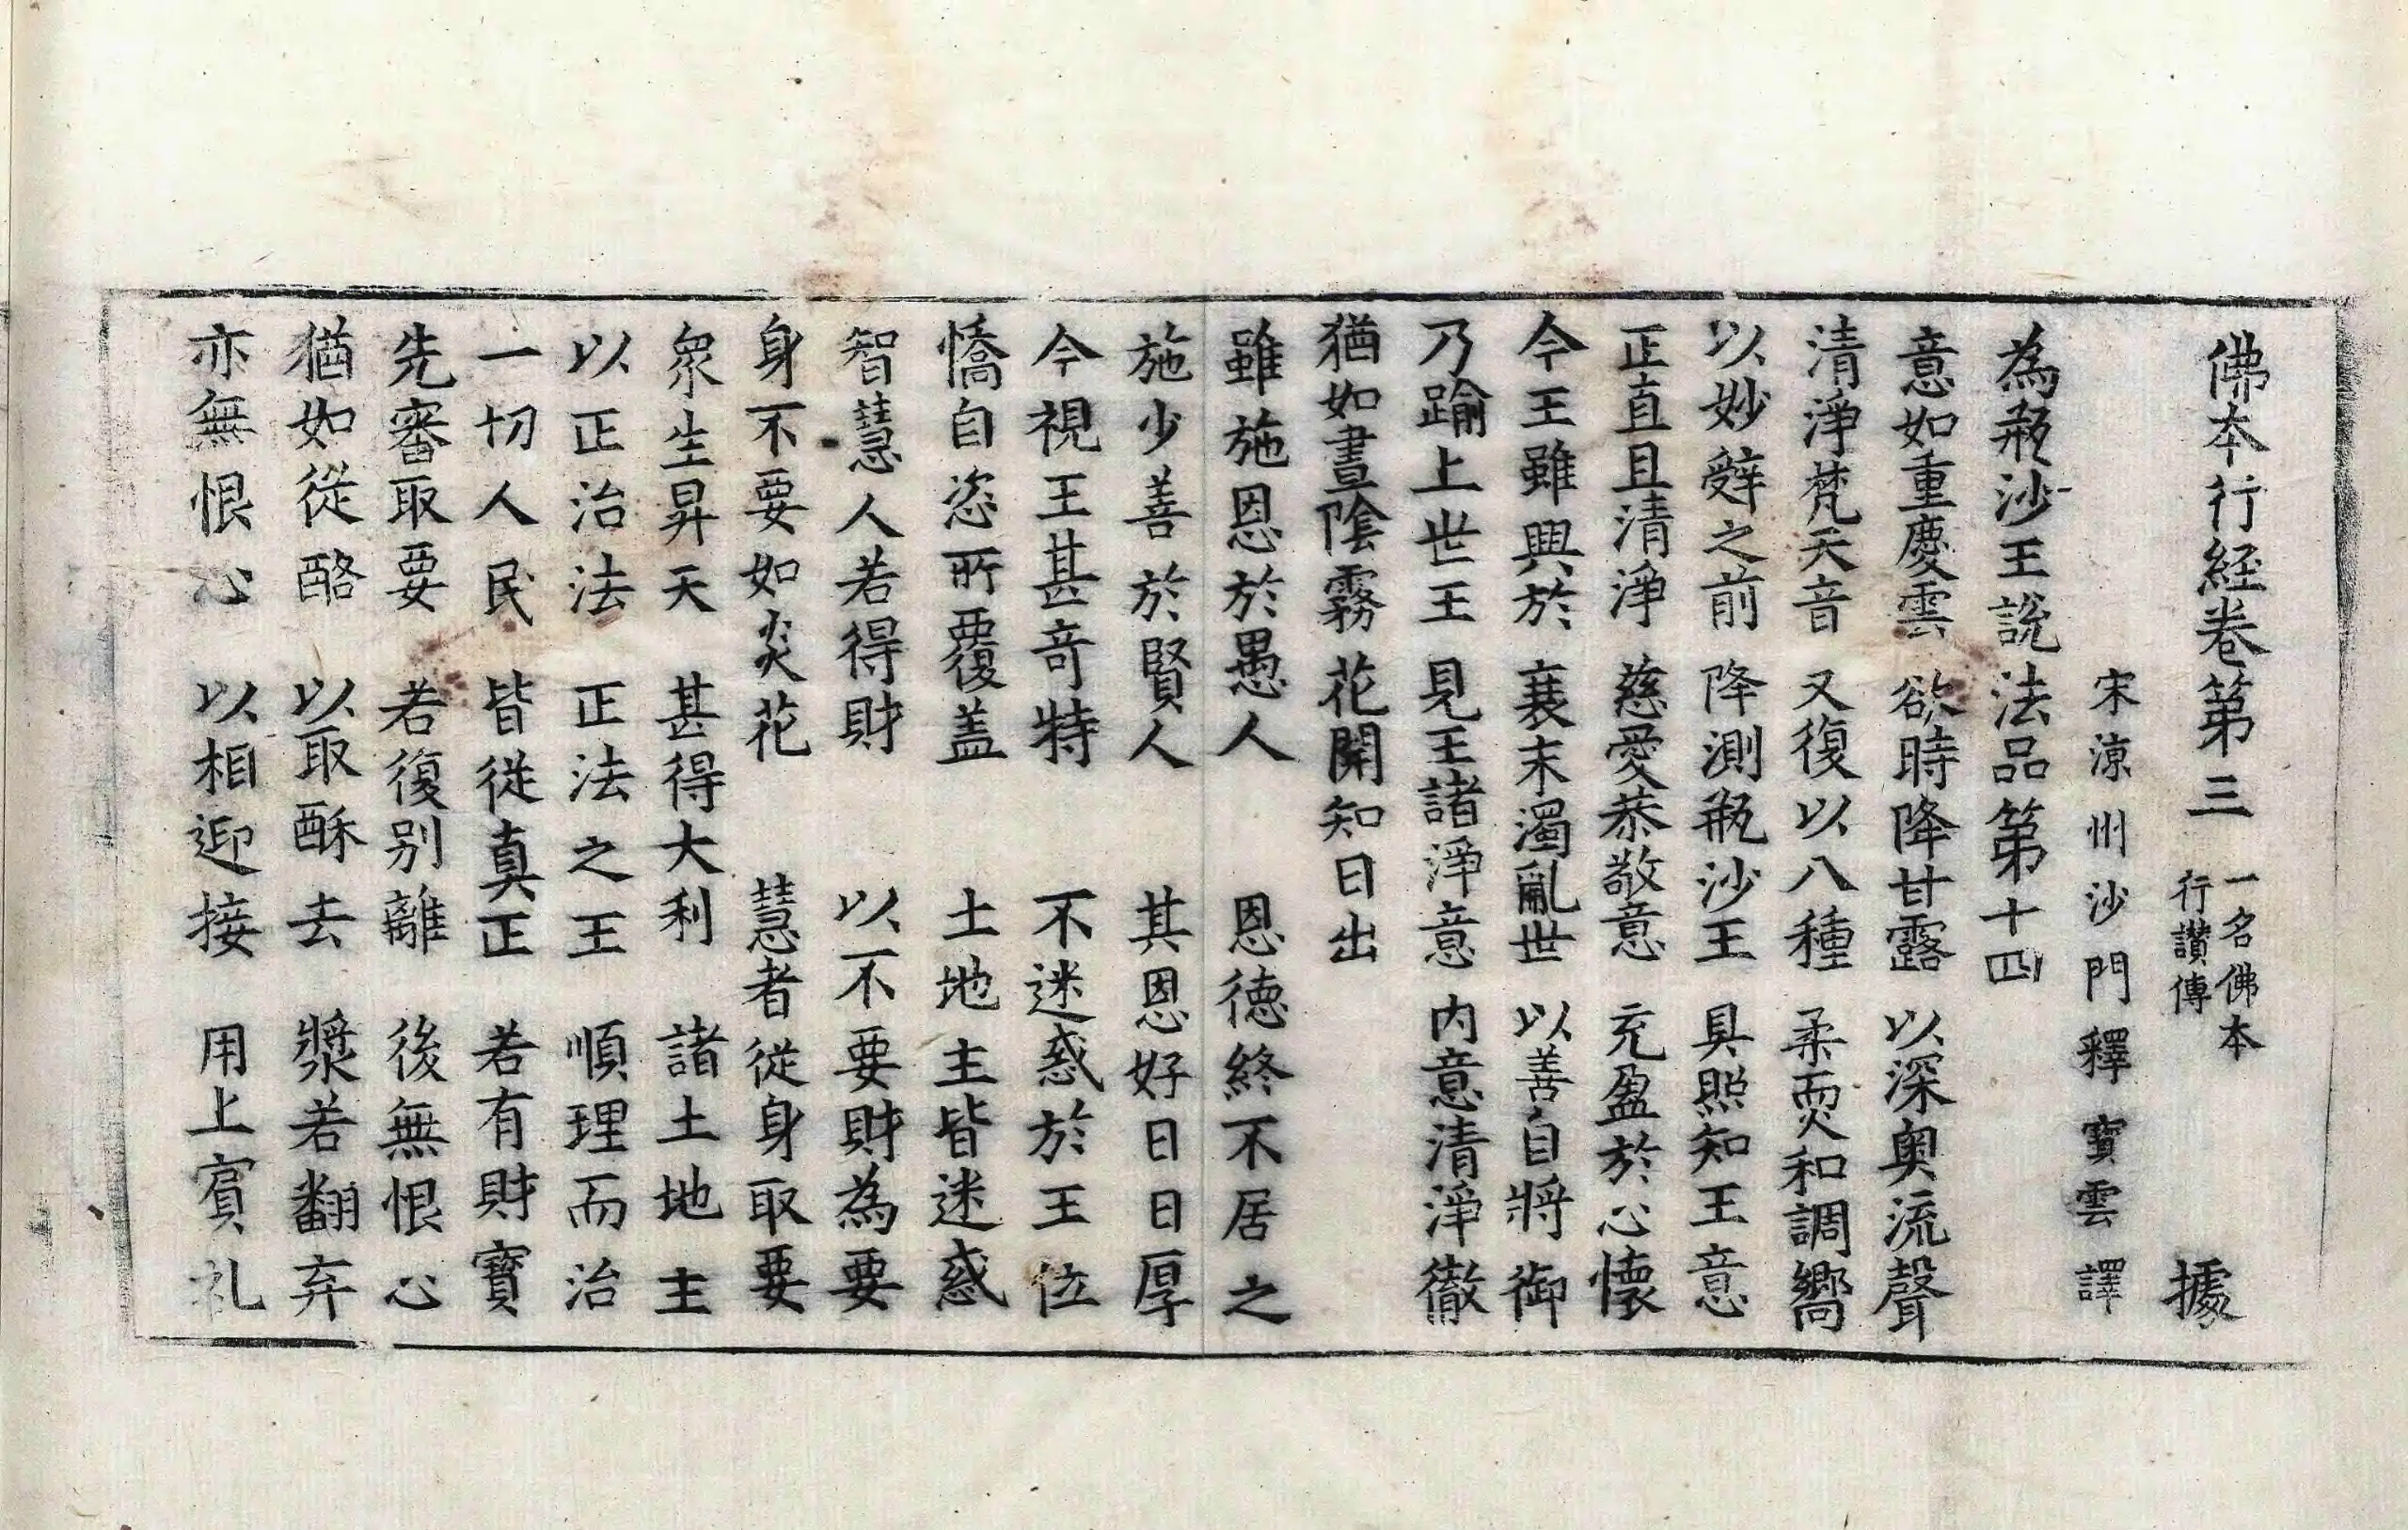 佛本行經卷第三 一名佛本行讚傳 據
宋涼州沙門釋寶雲譯
為瓶沙王說法品第十四
意如重慶雲 欲時降甘露 以深奧流聲
清淨梵天音 又復以八種 柔耎和調嚮
以妙辝之前 降測瓶沙王 具照知王意
正直且清淨 慈愛恭敬意 充盈於心懷
今王雖興於 衰末濁亂世 以善自將御
乃踰上世王 見王諸淨意 內意清淨徹
猶如晝陰霧 花開知日出
雖施恩於愚人 恩德終不居之
施少善於賢人 其恩好日日厚
今視王甚奇特 不迷惑於王位
憍自恣所覆蓋 土地主皆迷惑
智慧人若得財 以不要財為要
身不要如炎花 慧者從身取要
衆生昇天 甚得大利 諸土地主
以正治法 正法之王 順理而治
一切人民 皆從真正 若有財寶
先審取要 若復別離 後無恨心
猶如從酪 以取酥去 漿若翻弃
亦無恨心 以相迎接 用上賓礼